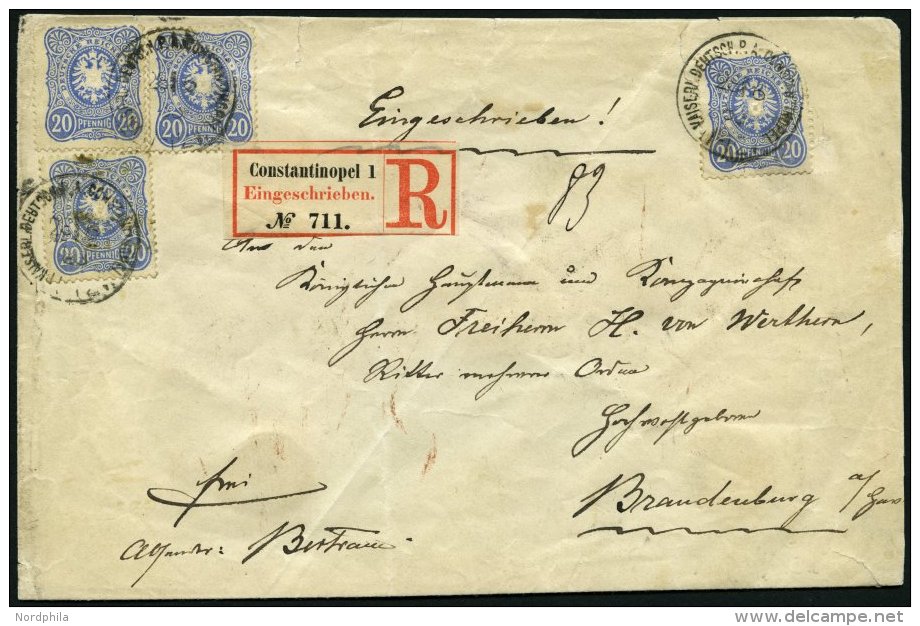 DEUTSCHE REICHS
20 PFENNIG 20
20 PFENNIG 20
20 PFENNIG 20
20 PFENNIG 20
KAISERL. DEUTSCH. P. A.
Eingeschrieben!
Constantinopel 1
Eingeschrieben.
№ 711.
R
83
An den
Königlichen Hauptmann und Kompagniechef
Herrn Freiherrn H. von Werthern,
Ritter mehrerer Orden
Hochwohlgeboren
Brandenburg a/Hav
frei
Absender: Bertram
Nordphila
delcampe.net